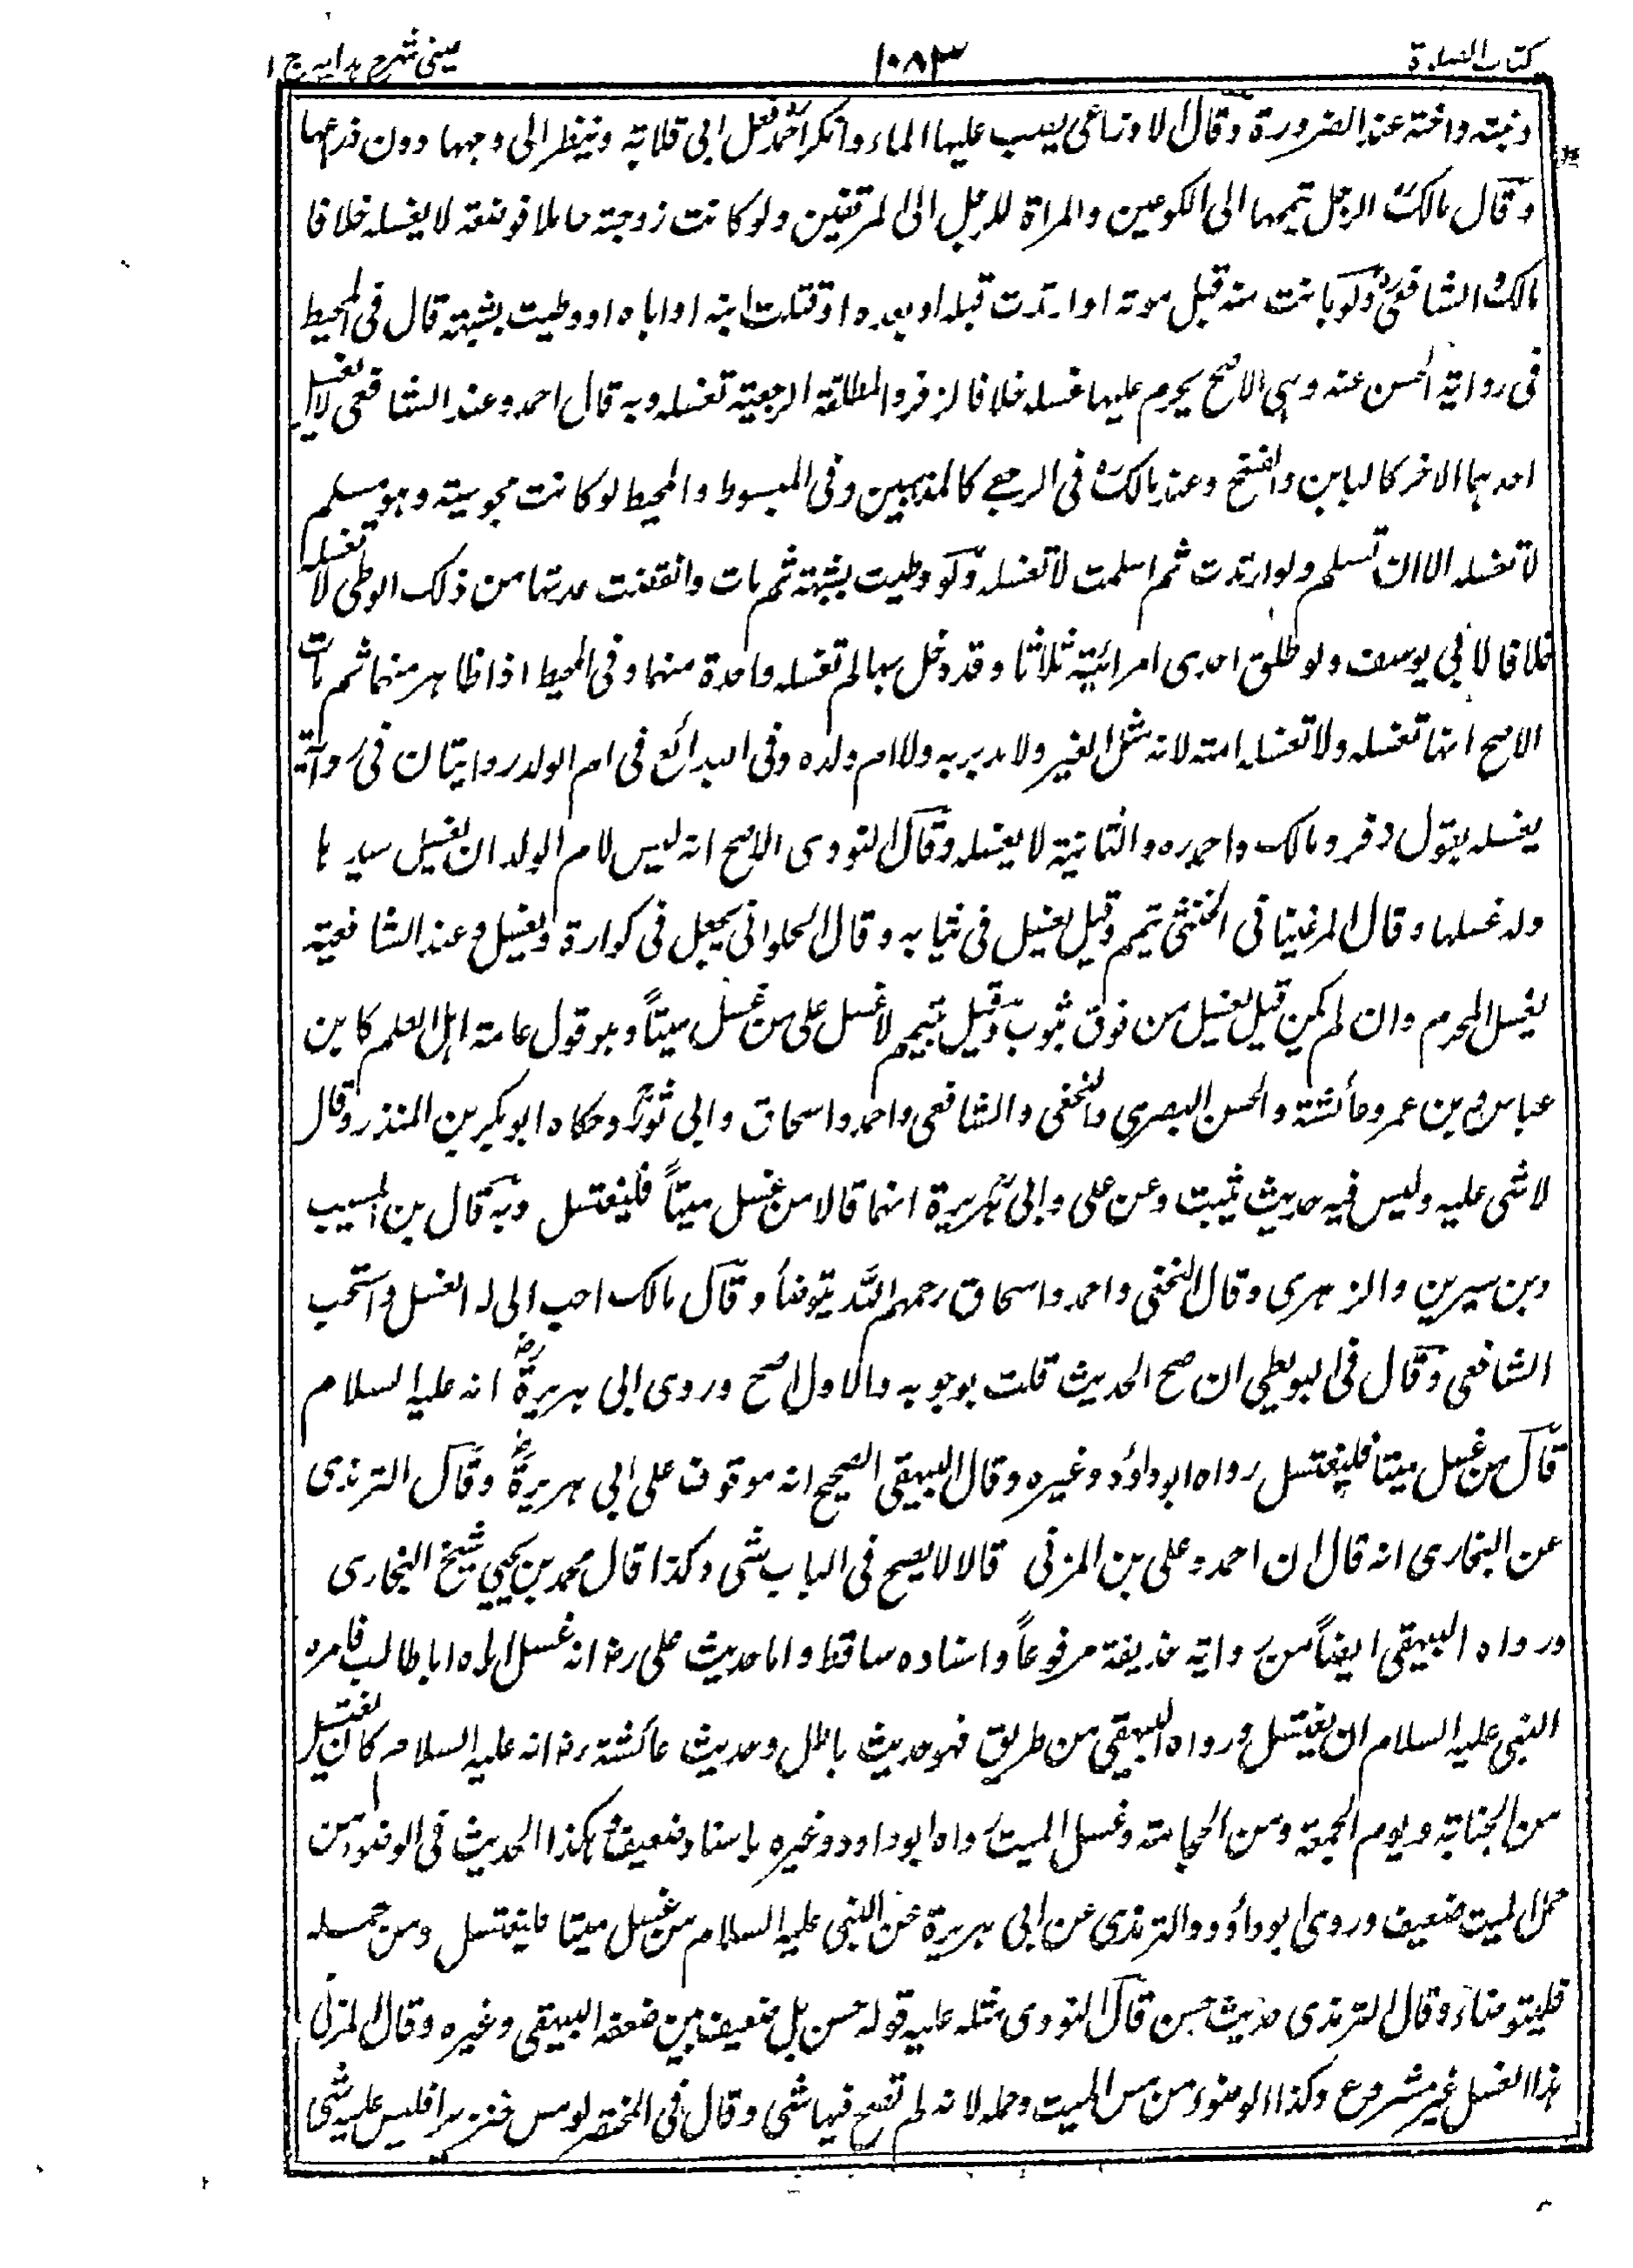 كتاب الصلاة
١٠٨٣
عينى شرح هدايه ج ١
وبنته واخته عند الضرورة وقال الاوزاعى يصب عليها الماء وانكر احمد فعل ابى قلابة وينظر الى وجهها دون ذراعها
وقال مالك الرجل تيممها الى الكوعين والمراة للرجل الى المرفقين ولو كانت زوجته حاملا فوضعته لا يغسله خلافا
مالك الشافعى ولو بانت منه قبل موته او ارتدت قبله او بعده او قتلت ابنه او اباه او وطيت بشبهة قال فى المحيط
فى رواية الحسن عنه وهى الاصح يحرم عليها غسله خلافا لزفر والمطلقة الرجعية تغسله وبه قال احمد وعند الشافعى لا يغسل
احدهما الاخر كالبائن والفسخ وعند مالك فى الرجعى كالمذهبين وفى المبسوط والمحيط لو كانت مجوسية وهو مسلم
لا تغسله الا ان تسلم ولو ارتدت ثم اسلمت لا تغسله ولو وطيت بشبهة ثم مات وانقضت عدتها من ذلك الوطى لا تغسله
خلافا لابي يوسف ولو طلق احدى امرائتيه ثلاثا وقد دخل بهما لم تغسله واحدة منهما وفى المحيط اذا ظاهر منهما ثم مات
الاصح انها تغسله ولا تغسله امته لانه مثل الغير ولا مدبرته ولا ام ولده وفى البدائع فى ام الولد روايتان فى رواية
يغسله بقول زفر ومالك واحمد ره والثانية لا يغسله وقال النووى الاصح انه ليس لام الولد ان يغسل سيدها
وله غسلها وقال المرغينانى الخنثى تيمم وقيل يغسل فى ثيابه وقال الحلوانى يجعل فى كوارة ويغسل وعند الشافعية
يغسل المحرم وان لم يكن قيل يغسل من فوق ثوب وقيل تيمم لا غسل على من غسل ميتاً وهو قول عامة اهل العلم كابن
عباس وبن عمر وعائشة والحسن البصرى والنخعى والشافعى واحمد واسحاق وابى ثور وحكاه ابو بكر بن المنذر وقال
لا شى عليه وليس فيه حديث ثبت وعن على وابى هريرة انهما قالا من غسل ميتاً فليغتسل وبه قال بن المسيب
وبن سيرين والزهرى وقال النخعى واحمد واسحاق رحمهم الله يتوضأ وقال مالك احب الى له الغسل واستحب
الشافعى وقال فى البويطى ان صح الحديث قلت بوجوبه والاول اصح وروى ابى هريرة رض انه عليه السلام
قال من غسل ميتا فليغتسل رواه ابو داؤد وغيره وقال البيهقى الصحيح انه موقوف على ابى هريرة رض وقال الترمذى
عن البخارى انه قال ان احمد وعلى بن المزنى قالا لا يصح فى الباب شى وكذا قال محمد بن يحيى شيخ البخارى
ورواه البيهقى ايضاً من رواية حذيفة مرفوعاً واسناده ساقط واما حديث على رض انه غسل اباه ابا طالب فامره
النبى عليه السلام ان يغتسل ورواه البيهقى من طريق فهو حديث باطل وحديث عائشة رض انه عليه السلام كان يغتسل
من الجنابة ويوم الجمعة ومن الحجامة وغسل الميت رواه ابو داود وغيره باسناد ضعيف وهكذا الحديث فى الوضوء من
حمل الميت ضعيف وروى ابو داؤد والترمذى عن ابى هريرة عن النبى عليه السلام من غسل ميتا فليغتسل ومن حمله
فليتوضاء وقال الترمذى حديث حسن قال النووى مثله عليه قوله حسن بل ضعيف بين ضعفه البيهقى وغيره وقال المزنى
هذا الغسل غير مشروع وكذا الوضوء من مس الميت وحمله لانه لم تصح فيها شى وقال فى المختصر لو مس خنزيرا فليس عليه شى